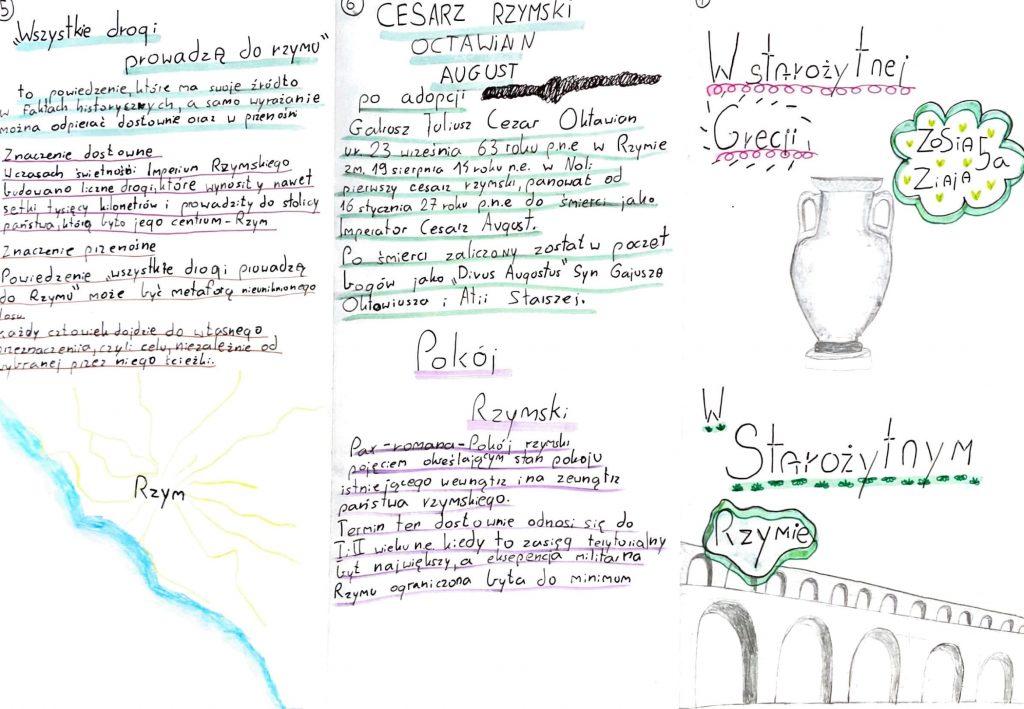 5
"Wszystkie drogi
prowadzą do rzymu"
to powiedzenie, które ma swoje źródło
w faktach historycznych, a samo wyrażanie
można odpierać dostownie oraz w przenośni
Znaczenie dostowne
Wczasach świetności Imperium Rzymskiego
budowano liczne drogi, które wynosity nawet
setki tysięcy kilonetrów i prowadzity do stolicy
państwa, którą byto jego centrum-Rzym
Znaczenie przenośne
Powiedzenie „wszystkie drogi prowadzą
do Rzymu" może być metaforą nieuniknionego
losu.
każdy cztowiek dojdzie do wtasnego
przeznaczenia, czyli celu, niezależnie od
wybranej przez niego ścieżki.
Rzym
6
CESARZ RZYMSKI
OCTAWIAN
AUGUST
po adopcji
Gaiusz Juliusz Cezar Oktawian
ur. 23 września 63 roku p.n.e w Rzymie
zm. 19 sierpnia 14 roku n.e. w Noli
pierwszy cesarz rzymski, panowat od
16 stycznia 27 roku p.n.e do śmierci jako
Imperator Cesarz August.
Po śmierci zaliczony zostat w poczet
bogów jako „Divus Augustus" Syn Gajusza
Oktawiusza i Atii Starszej.
Pokój
Rzymski
Pax-romana-Pokój rzymski
pojęciem określającym stan pokoju
istniejącego wewnątrz i na zewnątrz
państwa rzymskiego.
Termin ten dostownie odnosi się do
I i II wieku ne. kiedy to zasięg terytorialny
byt największy, a ekspencja militarna
Rzymu ograniczona byta do minimum
1
W starożytnej
Grecji
ZOSIA 5a
Ziaja
W
Starożytnym
Rzymie